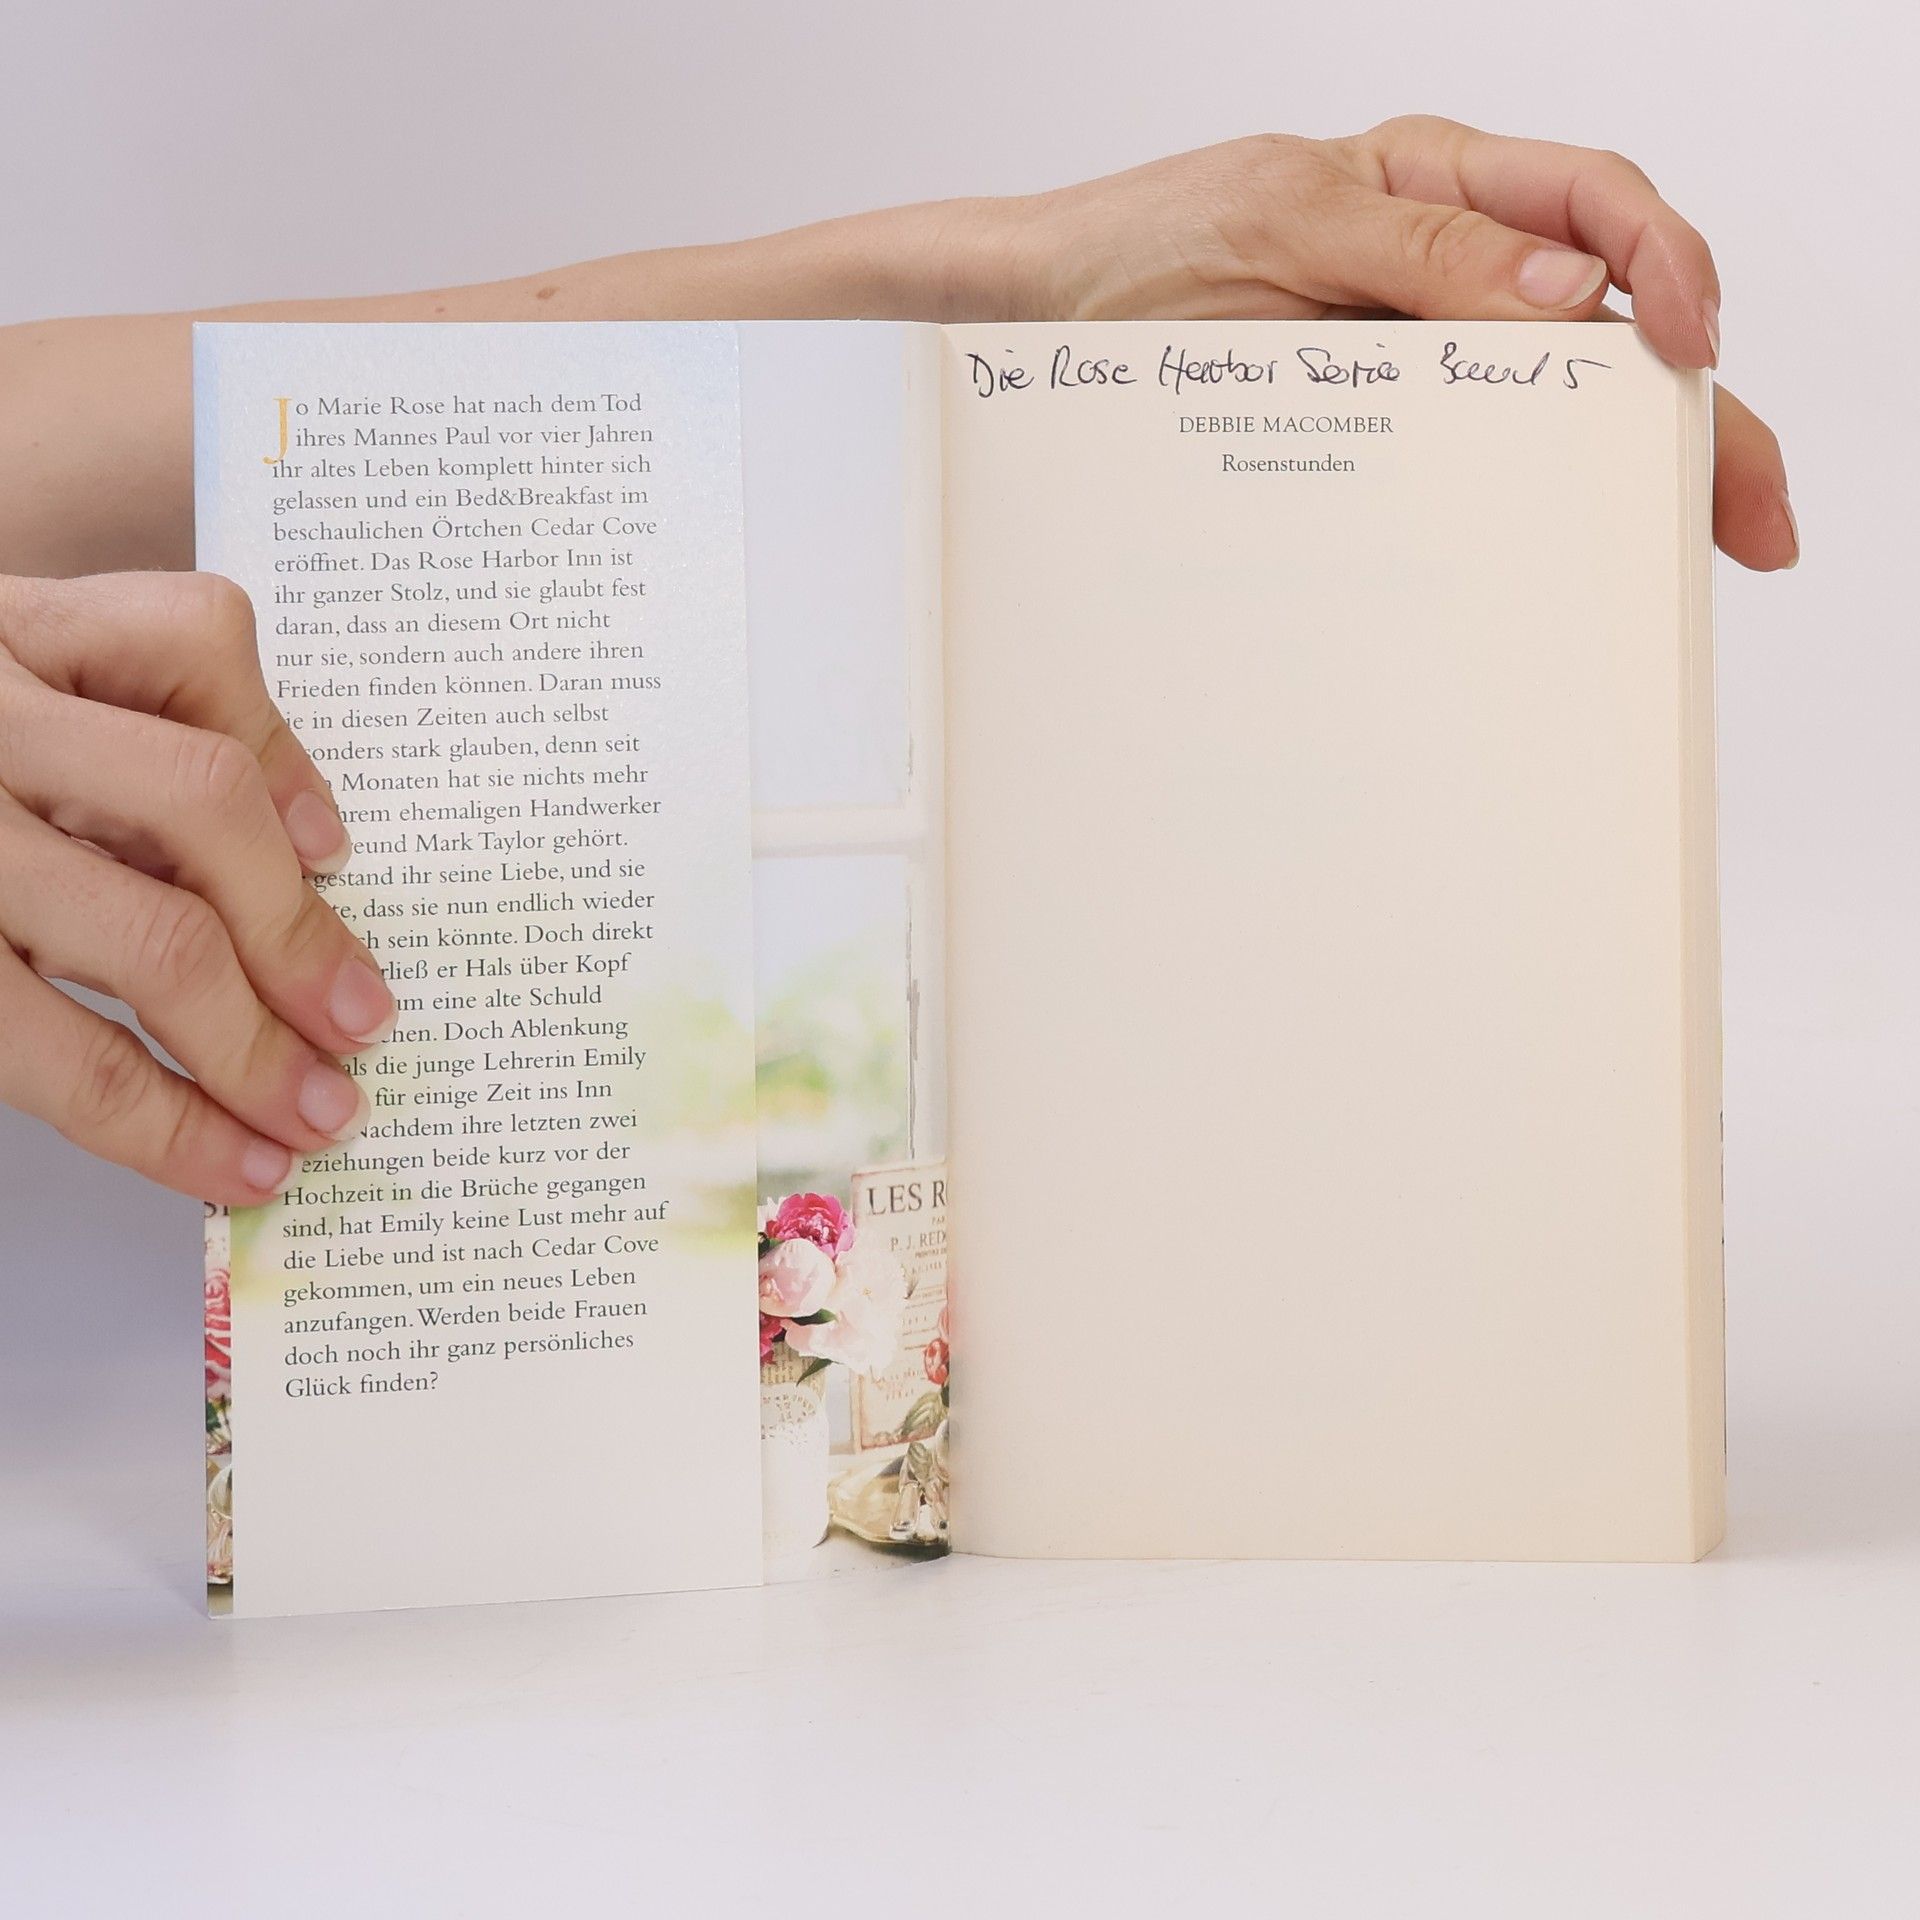 Jo Marie Rose hat nach dem Tod
ihres Mannes Paul vor vier Jahren
ihr altes Leben komplett hinter sich
gelassen und ein Bed&Breakfast im
beschaulichen Örtchen Cedar Cove
eröffnet. Das Rose Harbor Inn ist
ihr ganzer Stolz, und sie glaubt fest
daran, dass an diesem Ort nicht
nur sie, sondern auch andere ihren
Frieden finden können. Daran muss
in diesen Zeiten auch selbst
stark glauben, denn seit
Monaten hat sie nichts mehr
ehemaligen Handwerker
Mark Taylor gehört.
gestand ihr seine Liebe, und sie
dass sie nun endlich wieder
sein könnte. Doch direkt
er Hals über Kopf
eine alte Schuld
Doch Ablenkung
die junge Lehrerin Emily
für einige Zeit ins Inn
Nachdem ihre letzten zwei
eziehungen beide kurz vor der
Hochzeit in die Brüche gegangen
sind, hat Emily keine Lust mehr auf
die Liebe und ist nach Cedar Cove
gekommen, um ein neues Leben
anzufangen. Werden beide Frauen
doch noch ihr ganz persönliches
Glück finden?
LES R
P. J. RED
Die Rose Harbor Serie Band 5
DEBBIE MACOMBER
Rosenstunden